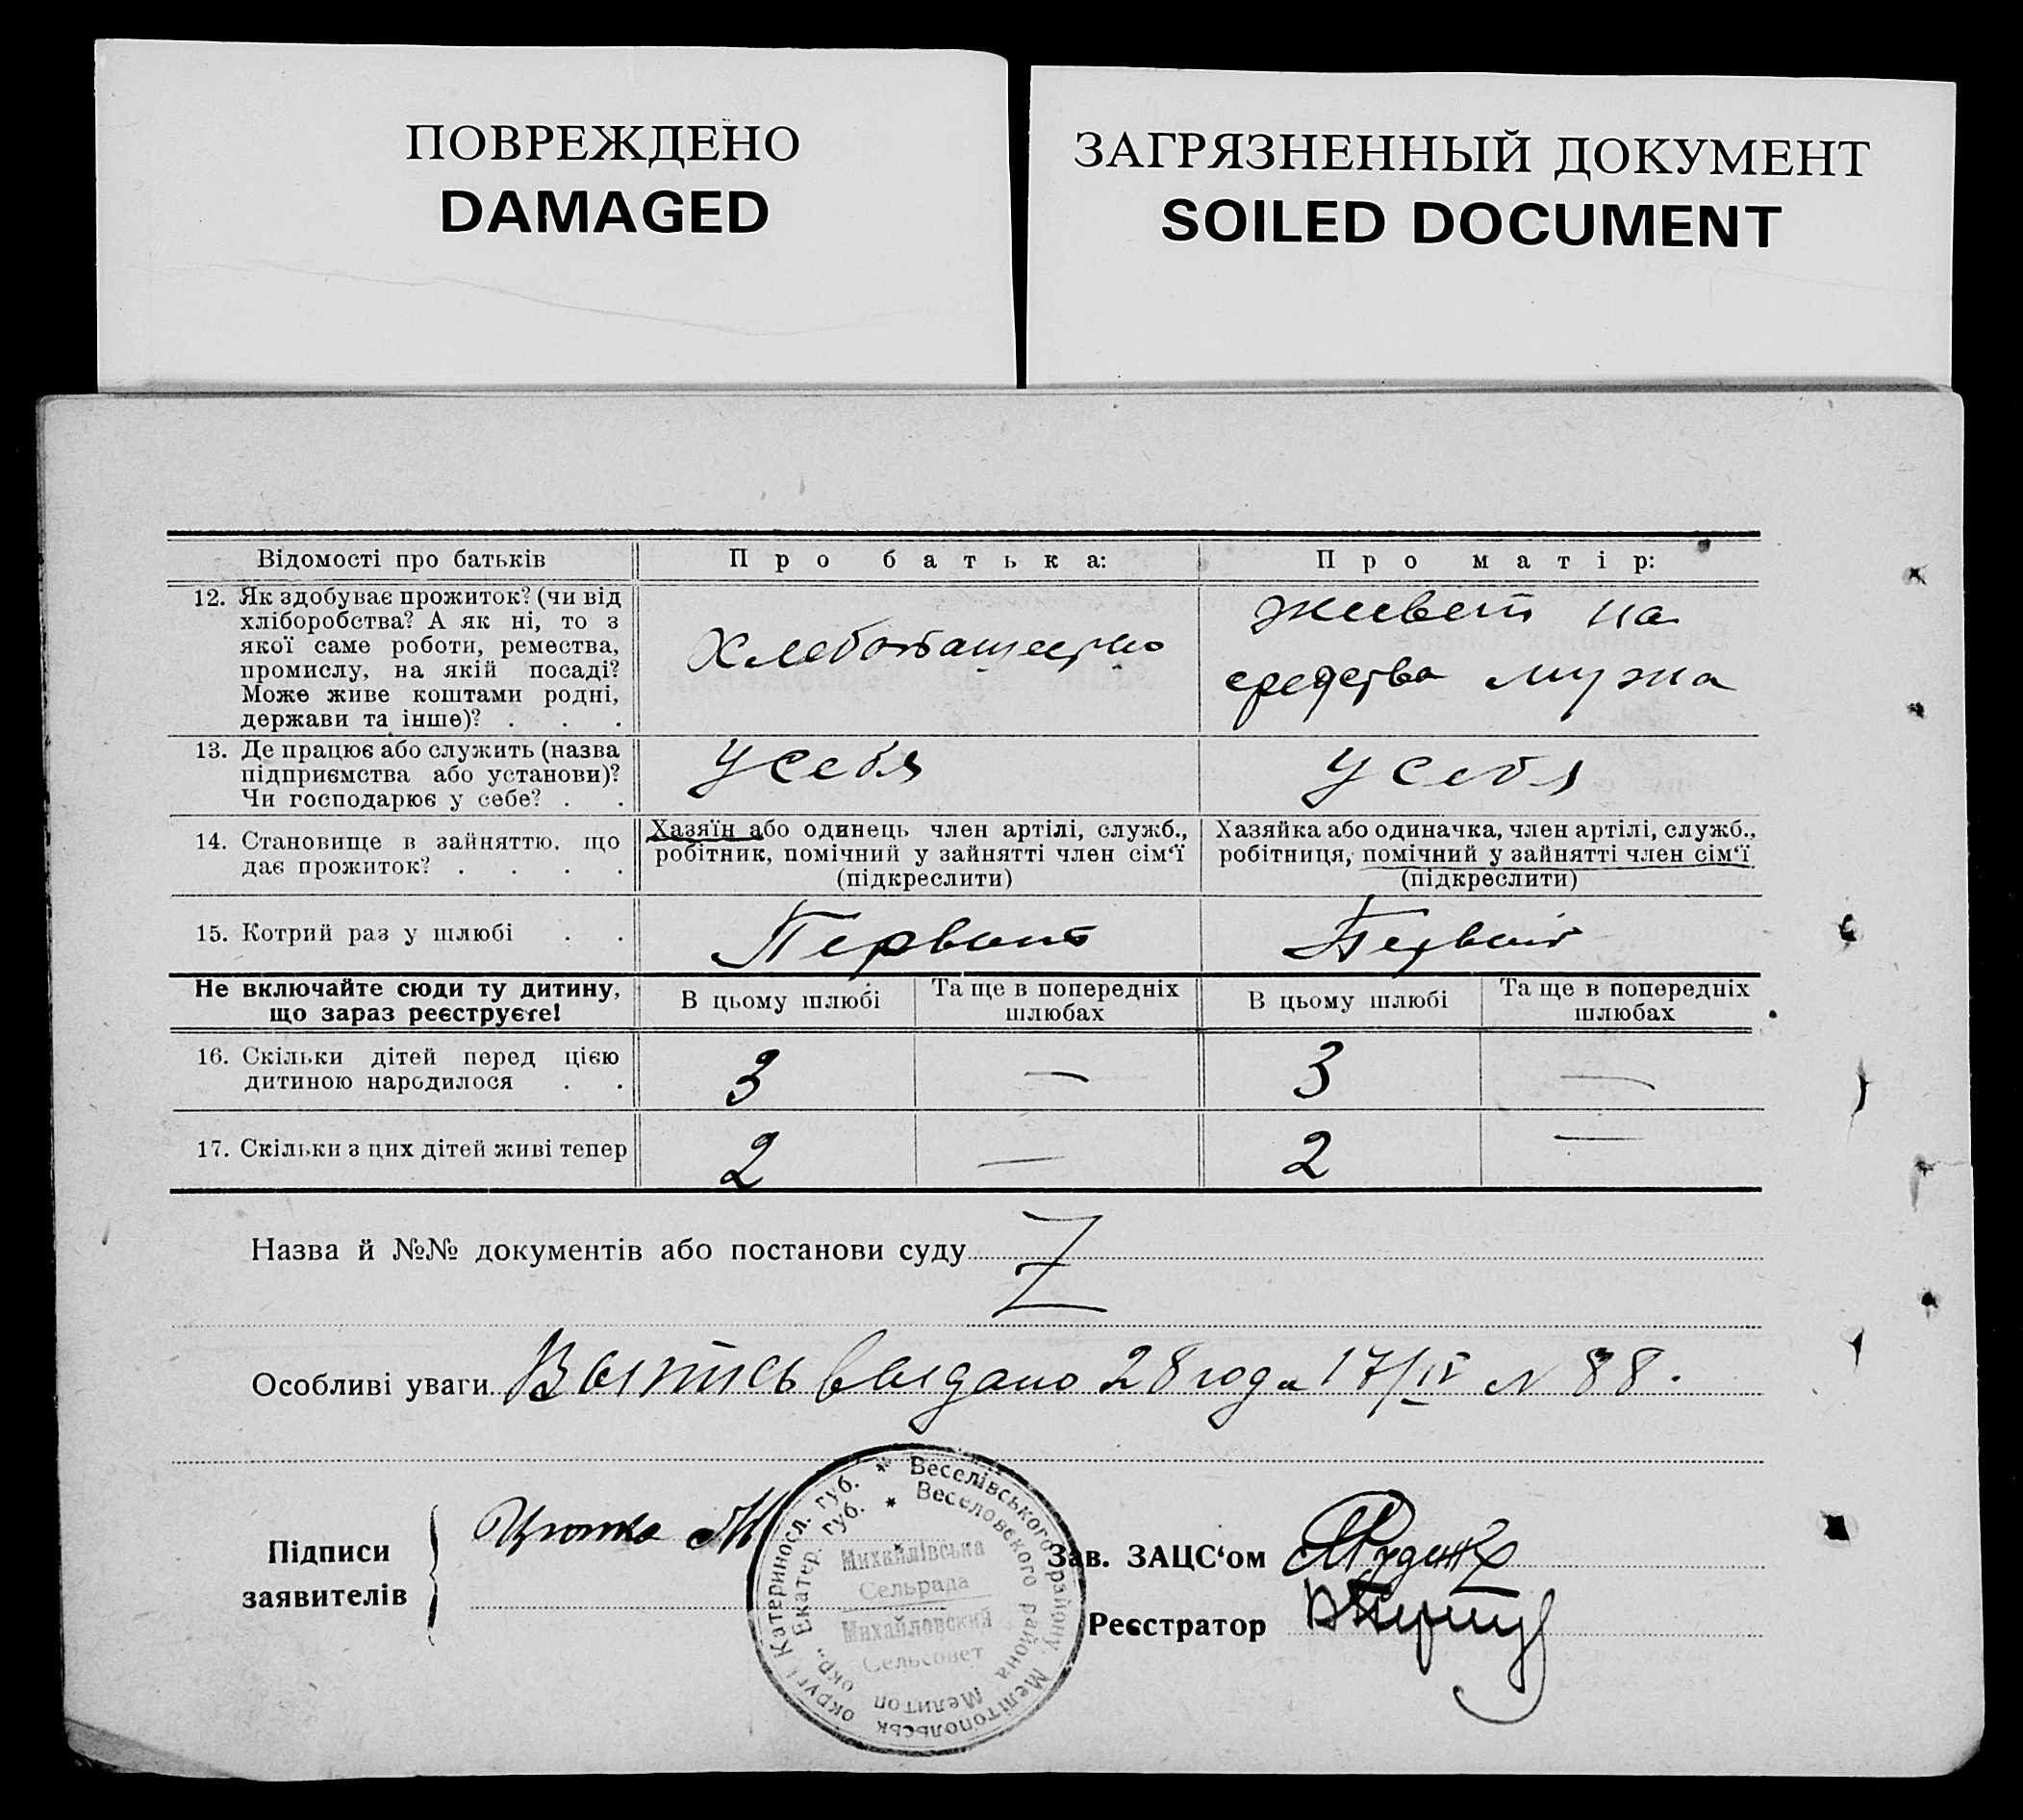 ПОВРЕЖДЕНО
DAMAGED
ЗАГРЯЗНЕННЫЙ ДОКУМЕНТ
SOILED DOCUMENT
Відомості про батьків
Про батька:
Про матір:
12. Як здобуває прожиток? (чи від
хліборобства? А як ні, то з
якої саме роботи, ремества,
промислу, на якій посаді?
Може живе коштами родні,
держави та інше)? . . .
Хлебопашество
живет на
средства мужа
13. Де працює або служить (назва
підприємства або установи)?
Чи господарює у себе? . .
у себя
у себя
14. Становище в зайняттю, що
дає прожиток? . . . .
Хазяїн або одинець член артілі, служб.,
робітник, помічний у зайнятті член сім‘ї
(підкреслити)
Хазяйка або одиначка, член артілі, служб.,
робітниця, помічний у зайнятті член сім‘ї
(підкреслити)
15. Котрий раз у шлюбі . .
Первый
Первый
Не включайте сюди ту дитину,
що зараз реєструєте!
В цьому шлюбі
Та ще в попередніх
шлюбах
В цьому шлюбі
Та ще в попередніх
шлюбах
16. Скільки дітей перед цією
дитиною народилося . .
3
—
3
—
17. Скільки з цих дітей живі тепер
2
—
2
—
Назва й №№ документів або постанови суду
Z
Особливі уваги Выпись выдано 28 года 17/IV № 88.
Підписи
заявителів
Веселівського району, Мелітопольськ округи Катериносл. губ.
Веселовского района Мелитоп окр., Екатер. губ.
Михайлівська
Сельрада
Михайловский
Сельсовет
Зав. ЗАЦС‘ом
Реєстратор